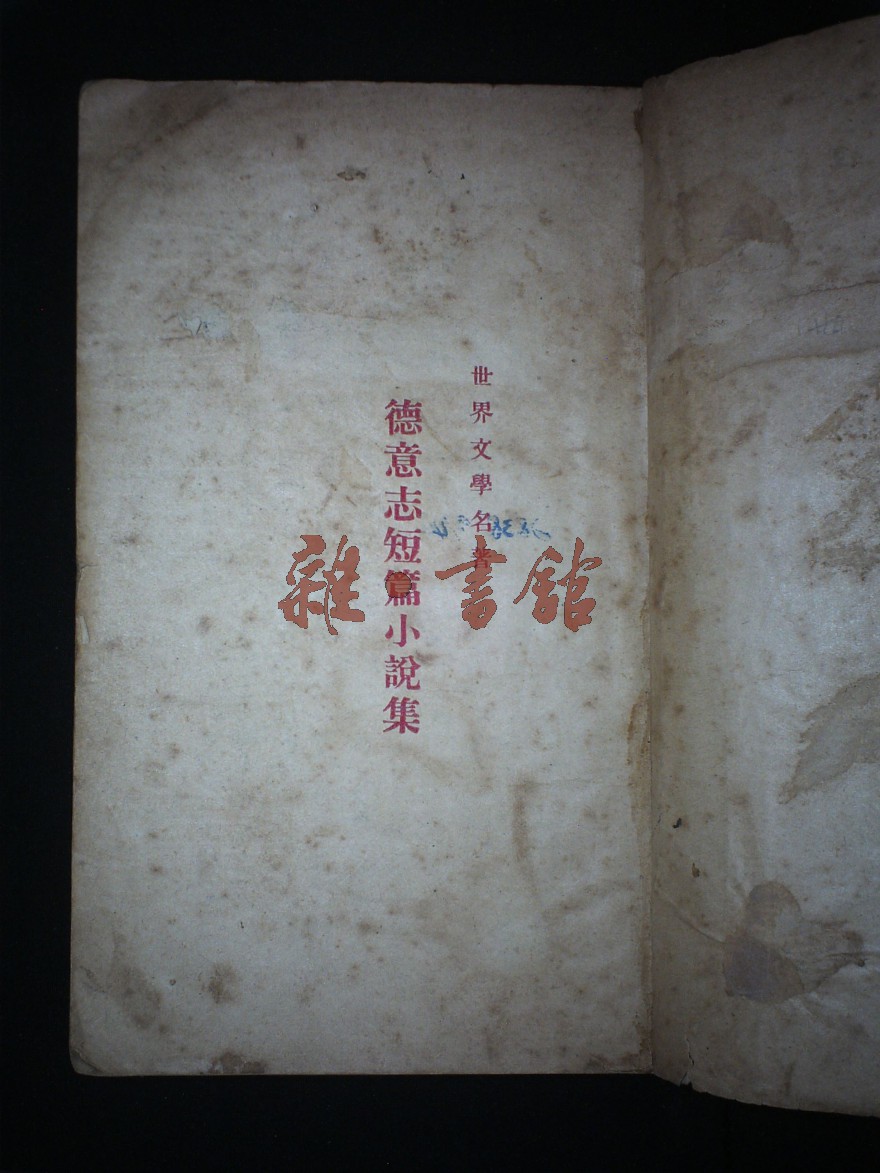 世界文學名著
德意志短篇小說集
雜·書館